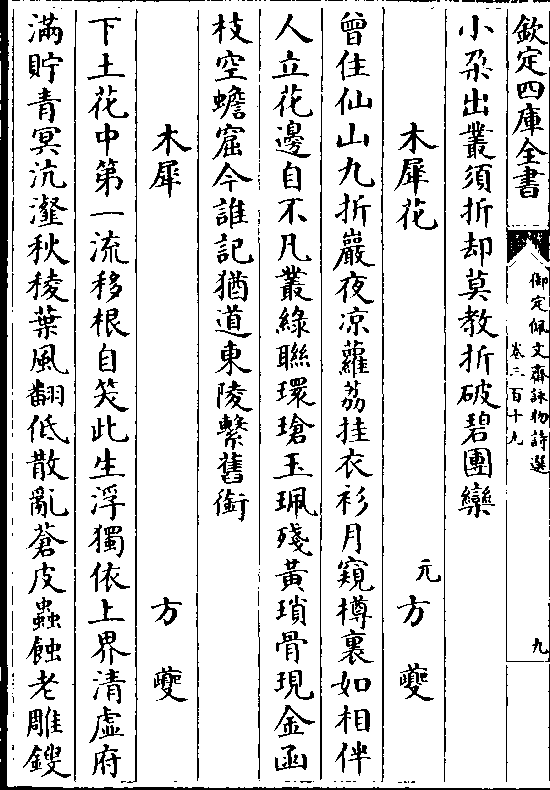 欽定四庫全書
御定佩文齋詠物詩選
卷三百十九
九
小朶出叢須折却莫教折破碧團欒
木犀花
元方夔
曾住仙山九折巖夜凉蘿荔挂衣衫月窺樽裏如相伴
人立花邊自不凡叢綠聯環瑲玉珮殘黃瑣骨現金函
枝空蟾窟今誰記猶道東陵繫舊銜
木犀
方夔
下土花中第一流移根自笑此生浮獨依上界清虛府
滿貯青冥沆瀣秋稜葉風翻低散亂蒼皮蟲蝕老雕鎪